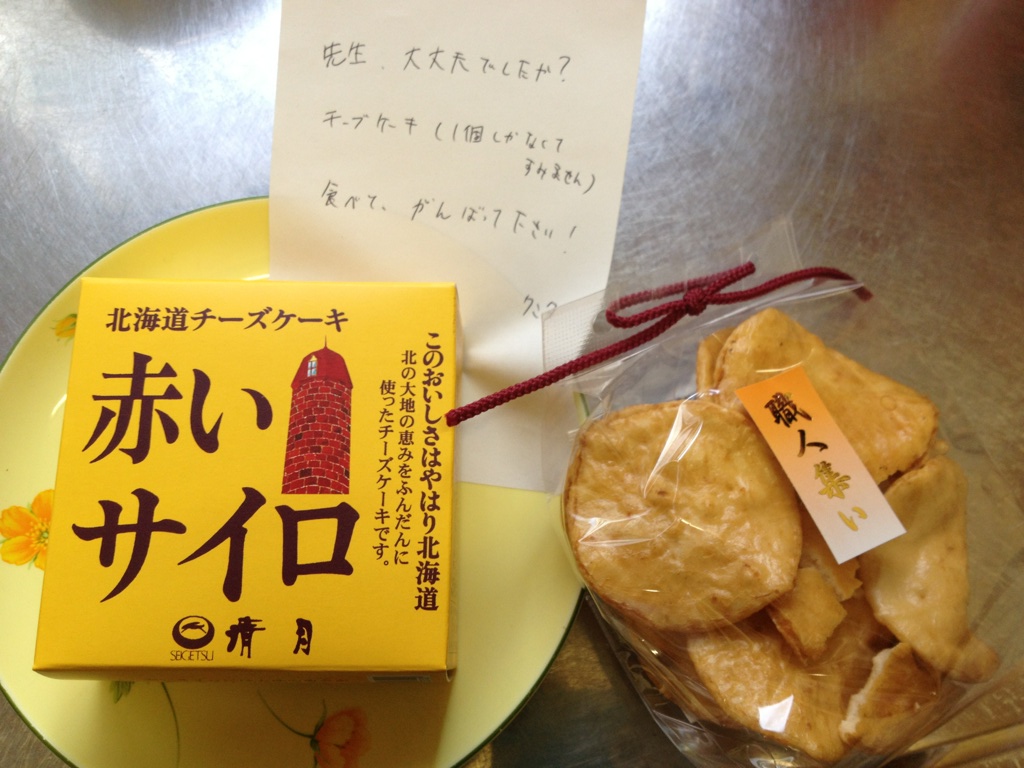 先生、大丈夫でしたか?
チーズケーキ(1個しかなくて
すみません)
食べて、がんばって下さい!
北海道チーズケーキ
赤い
サイロ
このおいしさはやはり北海道
北の大地の恵みをふんだんに
使ったチーズケーキです。
SEIGETSU
清月
職人集い